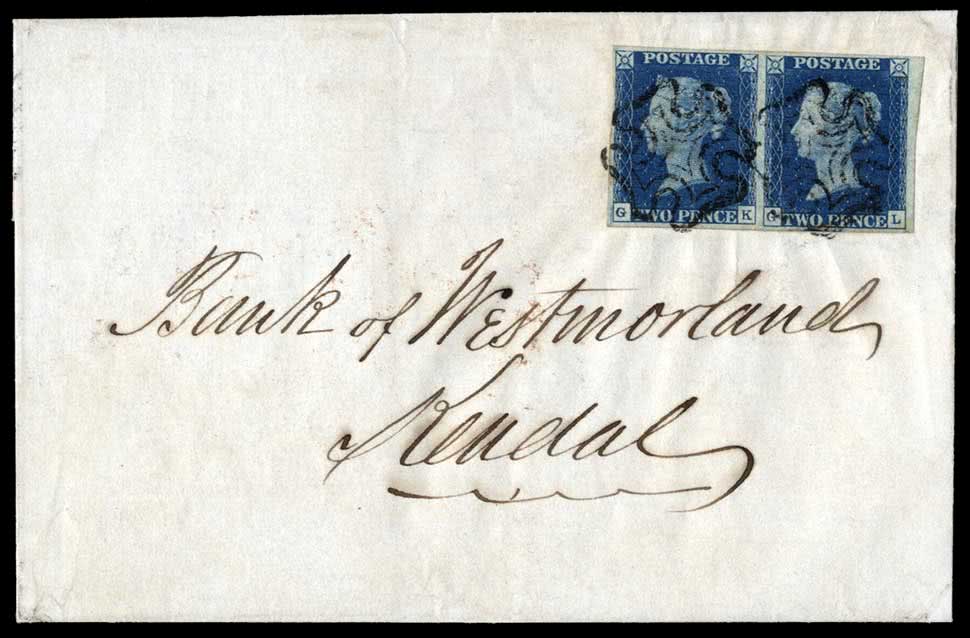 POSTAGE POSTAGE
G TWO PENCE K G TWO PENCE L
Bank of Westmorland
Kendal